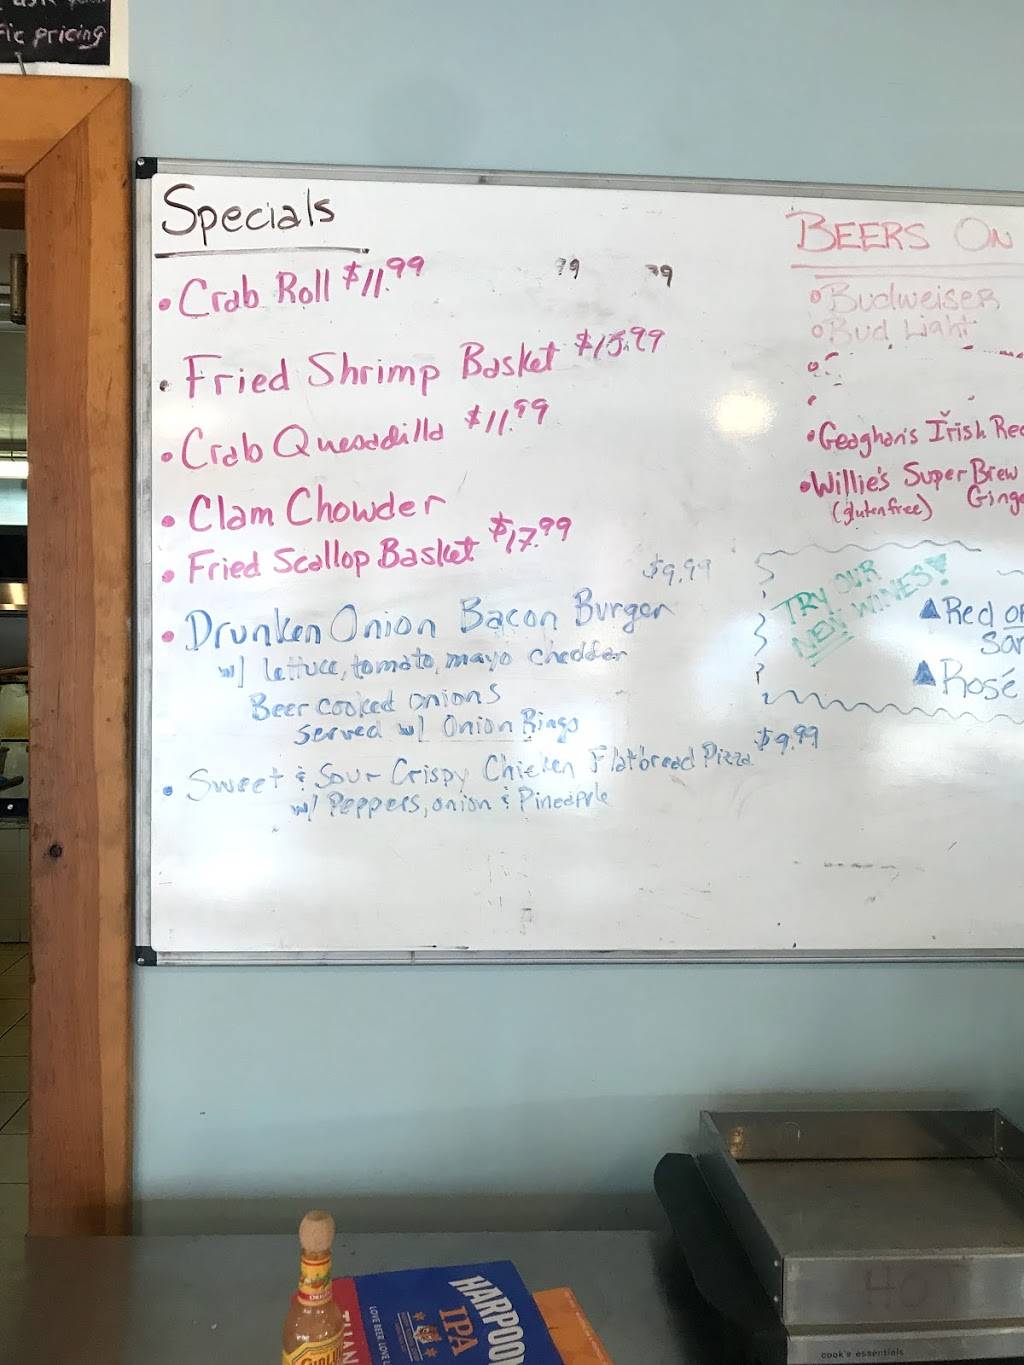 fic pricing
Specials
• Crab Roll $11.99
99 99
• Fried Shrimp Basket $15.99
• Crab Quesadilla $11.99
• Clam Chowder
• Fried Scallop Basket $17.99
• Drunken Onion Bacon Burger $9.99
w/ lettuce, tomato, mayo cheddar
Beer cooked onions
served w/ Onion Rings
• Sweet & Sour Crispy Chicken Flatbread Pizza $9.99
w/ Peppers, onion & Pineapple
BEERS ON
Budweiser
Bud Light
• Geaghan's Irish Red
• Willie's Super Brew
(gluten free) Ginge
TRY OUR
NEW WINES!
Red or
San
Rosé
HARPOO
IPA
LOVE BEER. LOVE L
40
cook's essentials